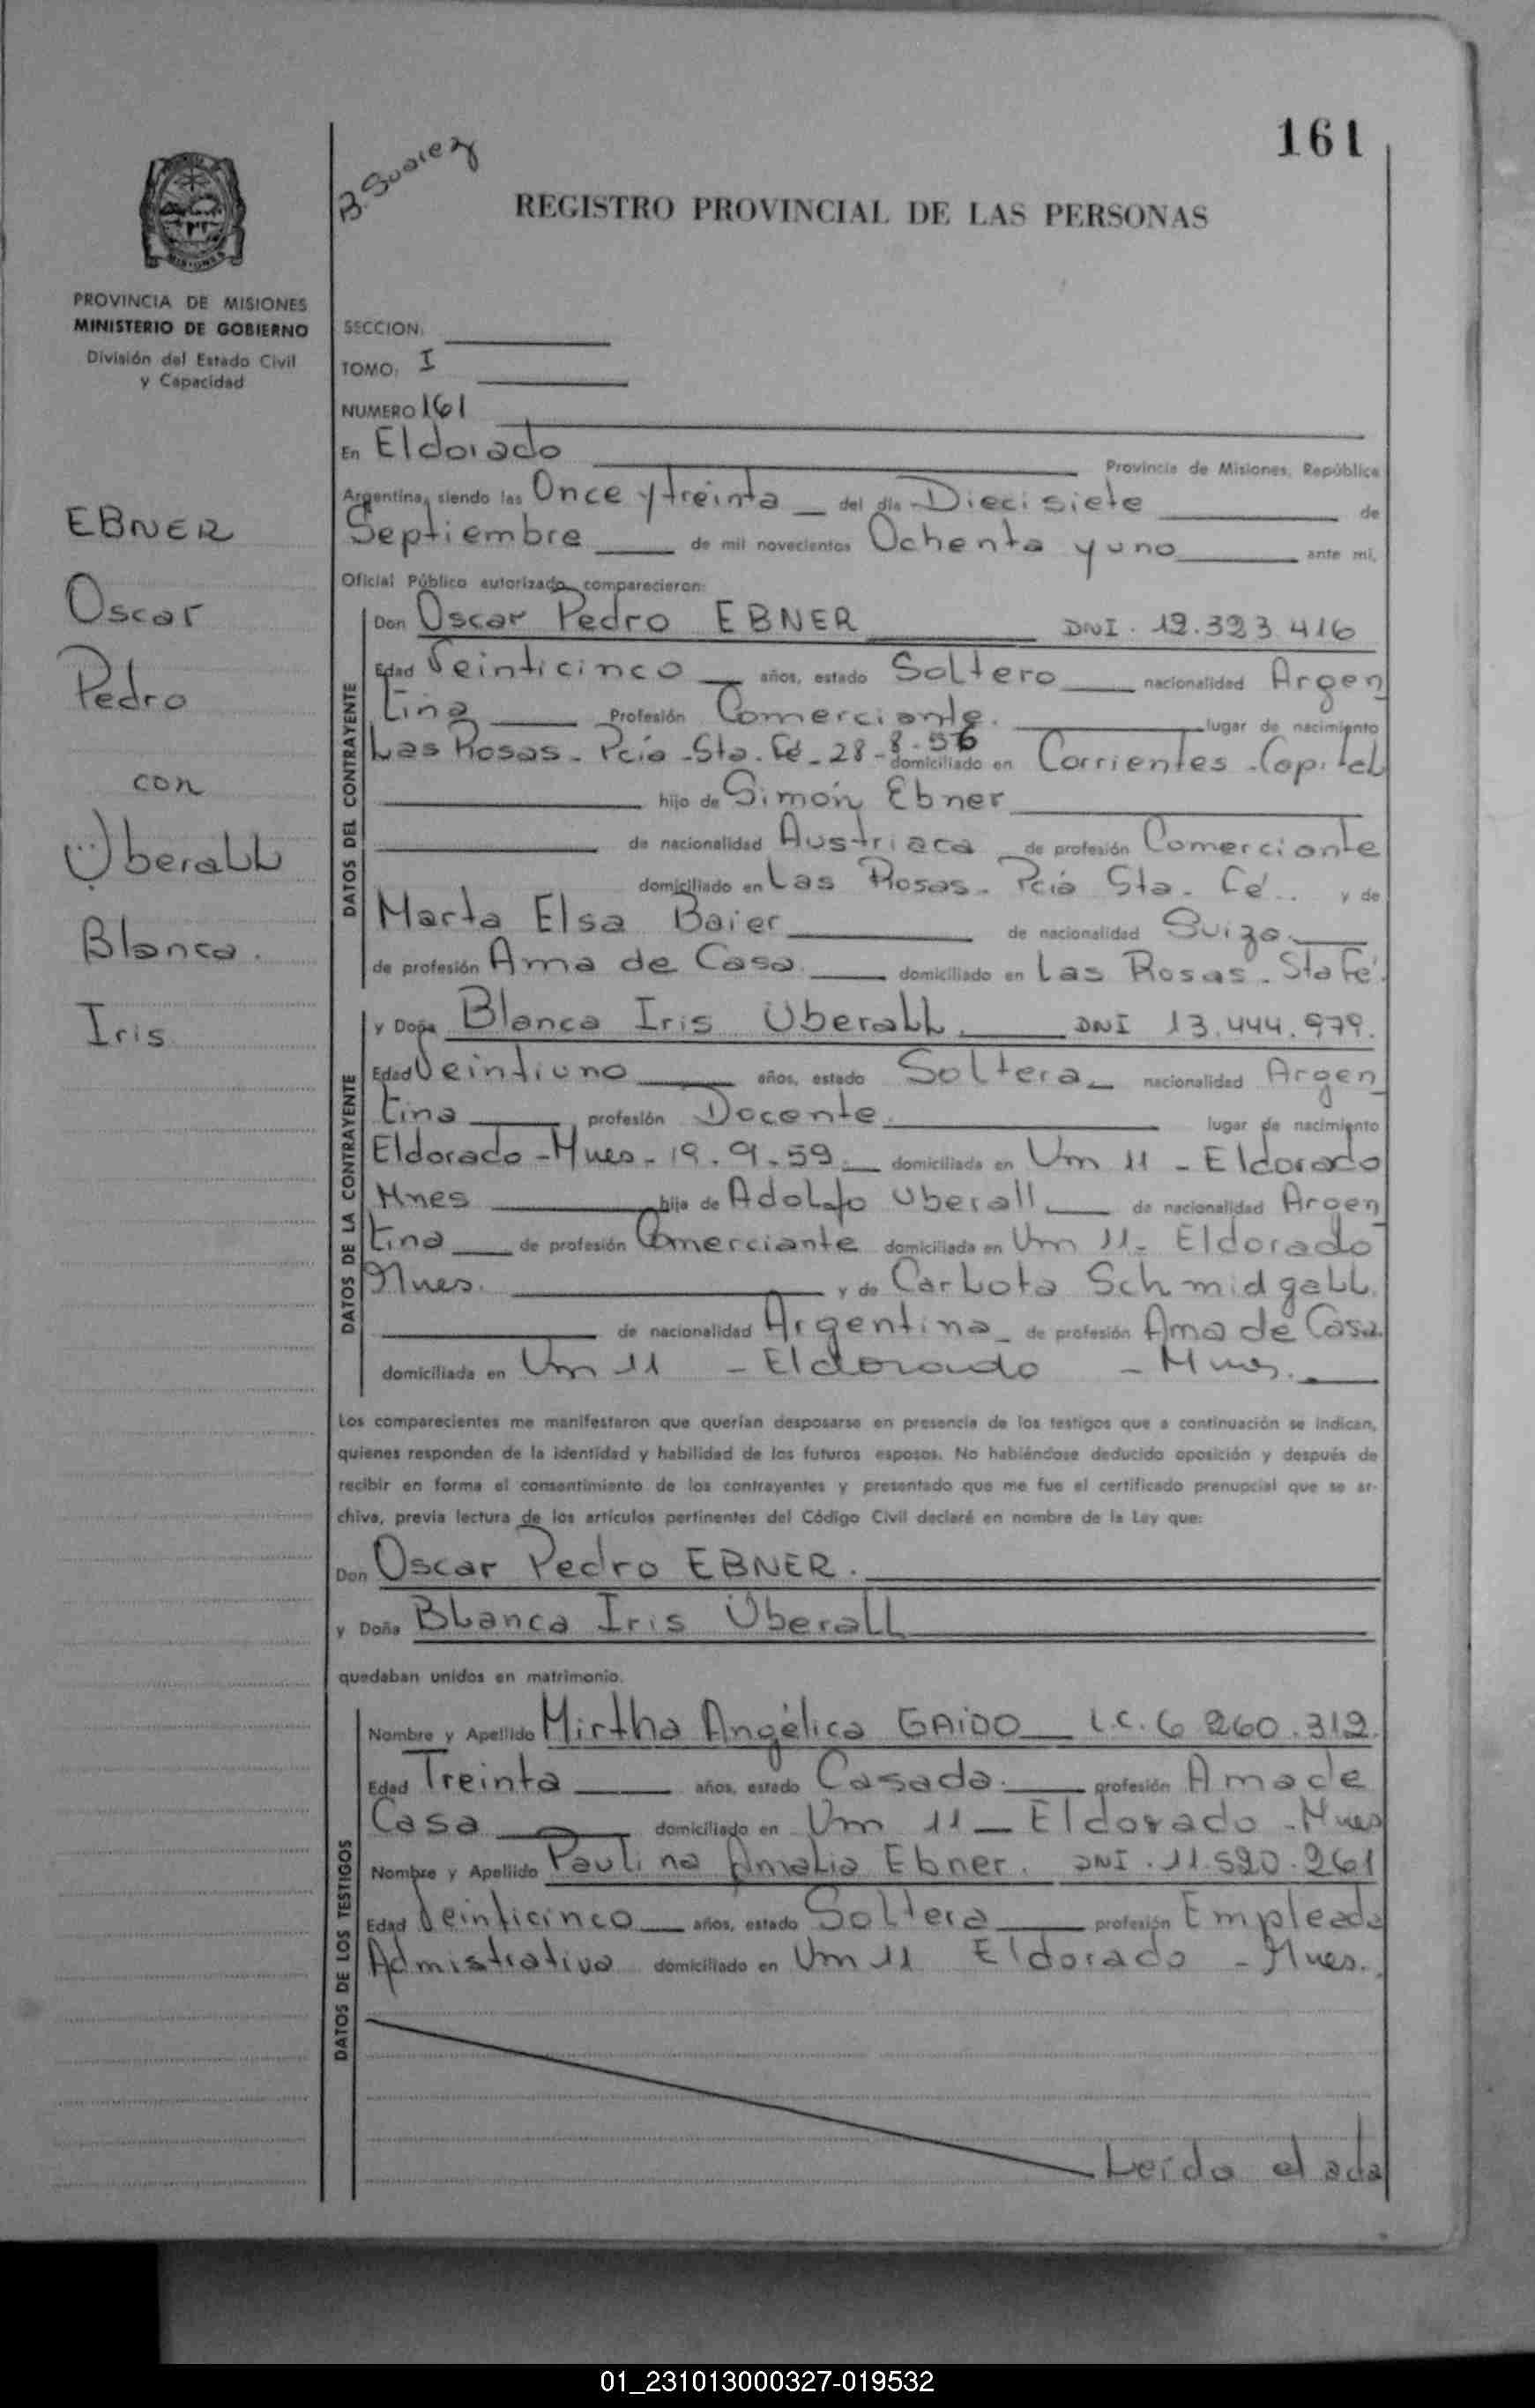 161
B. Suarez
REGISTRO PROVINCIAL DE LAS PERSONAS
MISIONES
PROVINCIA DE MISIONES
MINISTERIO DE GOBIERNO
División del Estado Civil
y Capacidad
EBNER
Oscar
Pedro
con
Überall
Blanca.
Iris
SECCION:
TOMO: I
NUMERO 161
En Eldorado Provincia de Misiones, República
Argentina, siendo las Once y treinta del día Diecisiete de
Septiembre de mil novecientos Ochenta y uno ante mí,
Oficial Público autorizado, comparecieron:
DATOS DEL CONTRAYENTE
Don Oscar Pedro EBNER DNI. 12.323.416
Edad Veinticinco años, estado Soltero nacionalidad Argen
tina Profesión Comerciante. lugar de nacimiento
Las Rosas - Pcia - Sta. Fé - 28-8-56 domiciliado en Corrientes - Capital
hijo de Simón Ebner
de nacionalidad Austriaca de profesión Comerciante
domiciliado en Las Rosas - Pcia Sta. Fé.. y de
Marta Elsa Baier de nacionalidad Suiza.
de profesión Ama de Casa domiciliado en Las Rosas - Sta Fé.
DATOS DE LA CONTRAYENTE
y Doña Blanca Iris Uberall. DNI 13.444.979.
Edad Veintiuno años, estado Soltera nacionalidad Argen
tina profesión Docente. lugar de nacimiento
Eldorado - Mnes - 19.9.59 domiciliada en Km 11 - Eldorado
Mnes hija de Adolfo Uberall de nacionalidad Argen
tina de profesión Comerciante domiciliada en Km 11 - Eldorado
Mnes. y de Carlota Schmidgall.
de nacionalidad Argentina de profesión Ama de Casa.
domiciliada en Km 11 - Eldorado - Mnes.
Los comparecientes me manifestaron que querían desposarse en presencia de los testigos que a continuación se indican,
quienes responden de la identidad y habilidad de los futuros esposos. No habiéndose deducido oposición y después de
recibir en forma el consentimiento de los contrayentes y presentado que me fue el certificado prenupcial que se ar-
chiva, previa lectura de los artículos pertinentes del Código Civil declaré en nombre de la Ley que:
Don Oscar Pedro EBNER.
y Doña Blanca Iris Überall
quedaban unidos en matrimonio.
DATOS DE LOS TESTIGOS
Nombre y Apellido Mirtha Angélica GAIDO L.C. 6 260.312.
Edad Treinta años, estado Casada. profesión Ama de
Casa domiciliado en Km 11 - Eldorado - Mnes
Nombre y Apellido Paulina Amalia Ebner. DNI. 11.520.261
Edad Veinticinco años, estado Soltera profesión Empleada
Admistrativa domiciliado en Km 11 Eldorado - Mnes.
Leída el acta
01_231013000327-019532